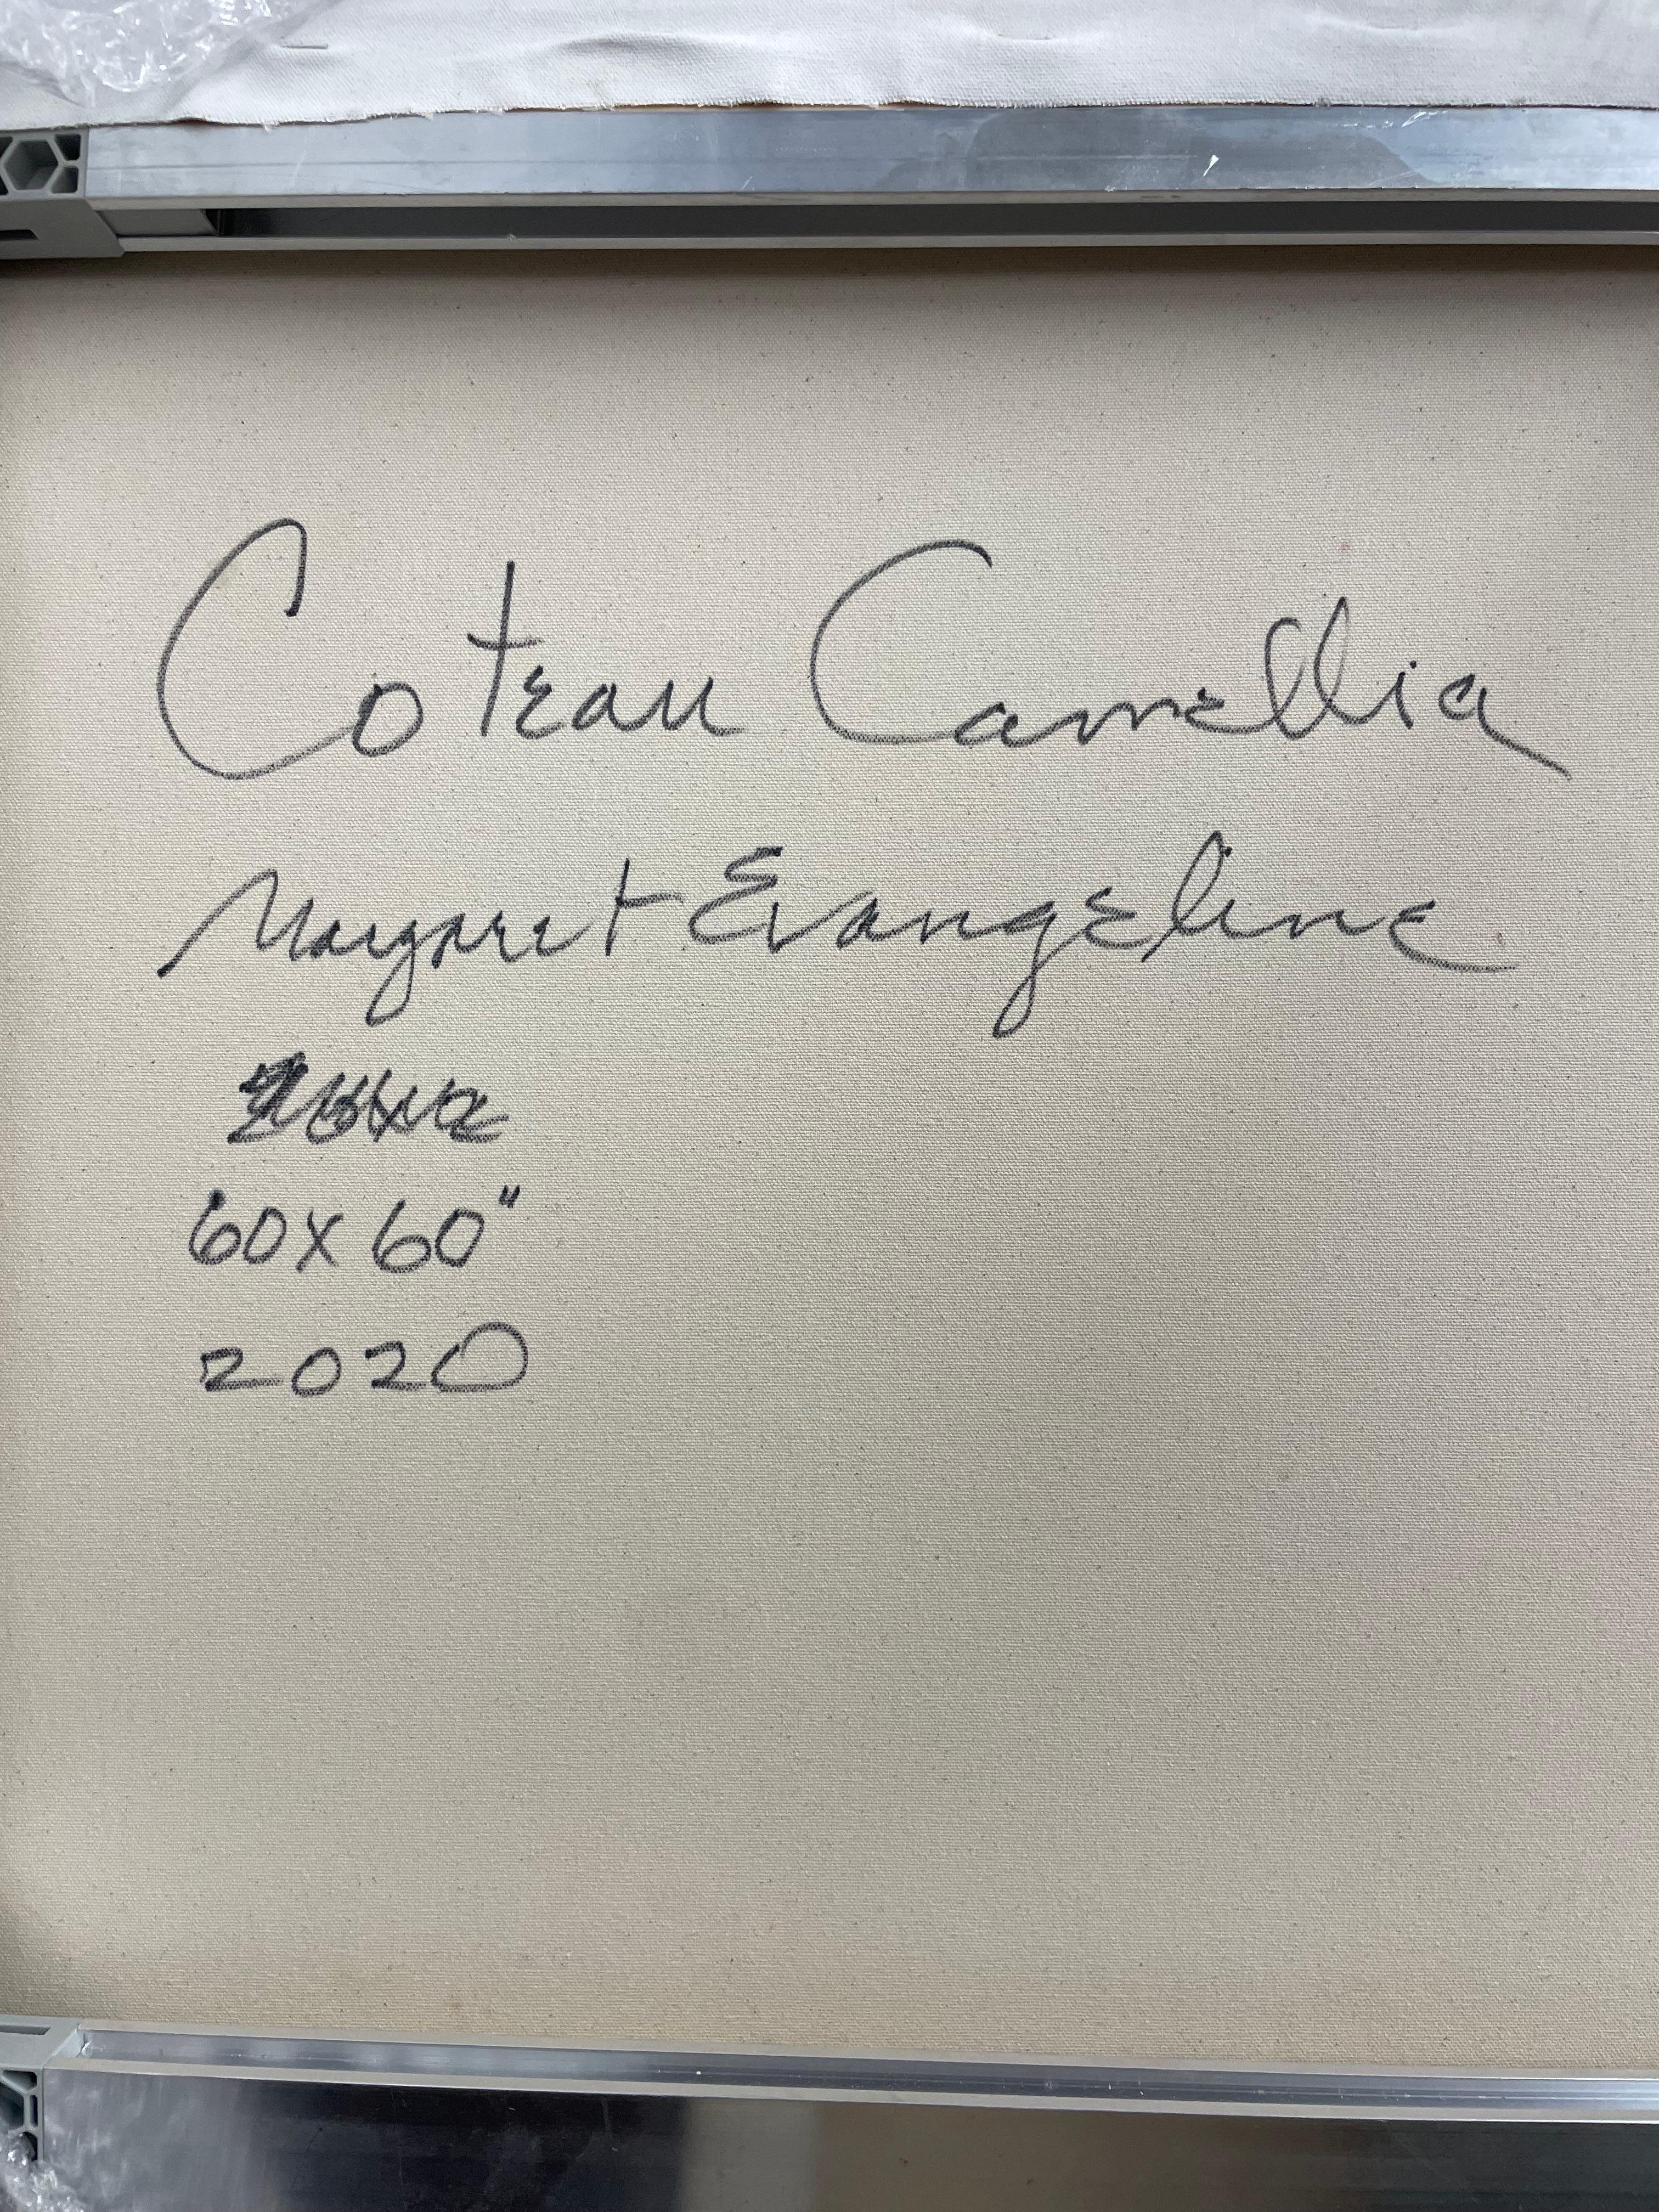 Coteau Camellia
Margaret Evangeline
60x60"
2020